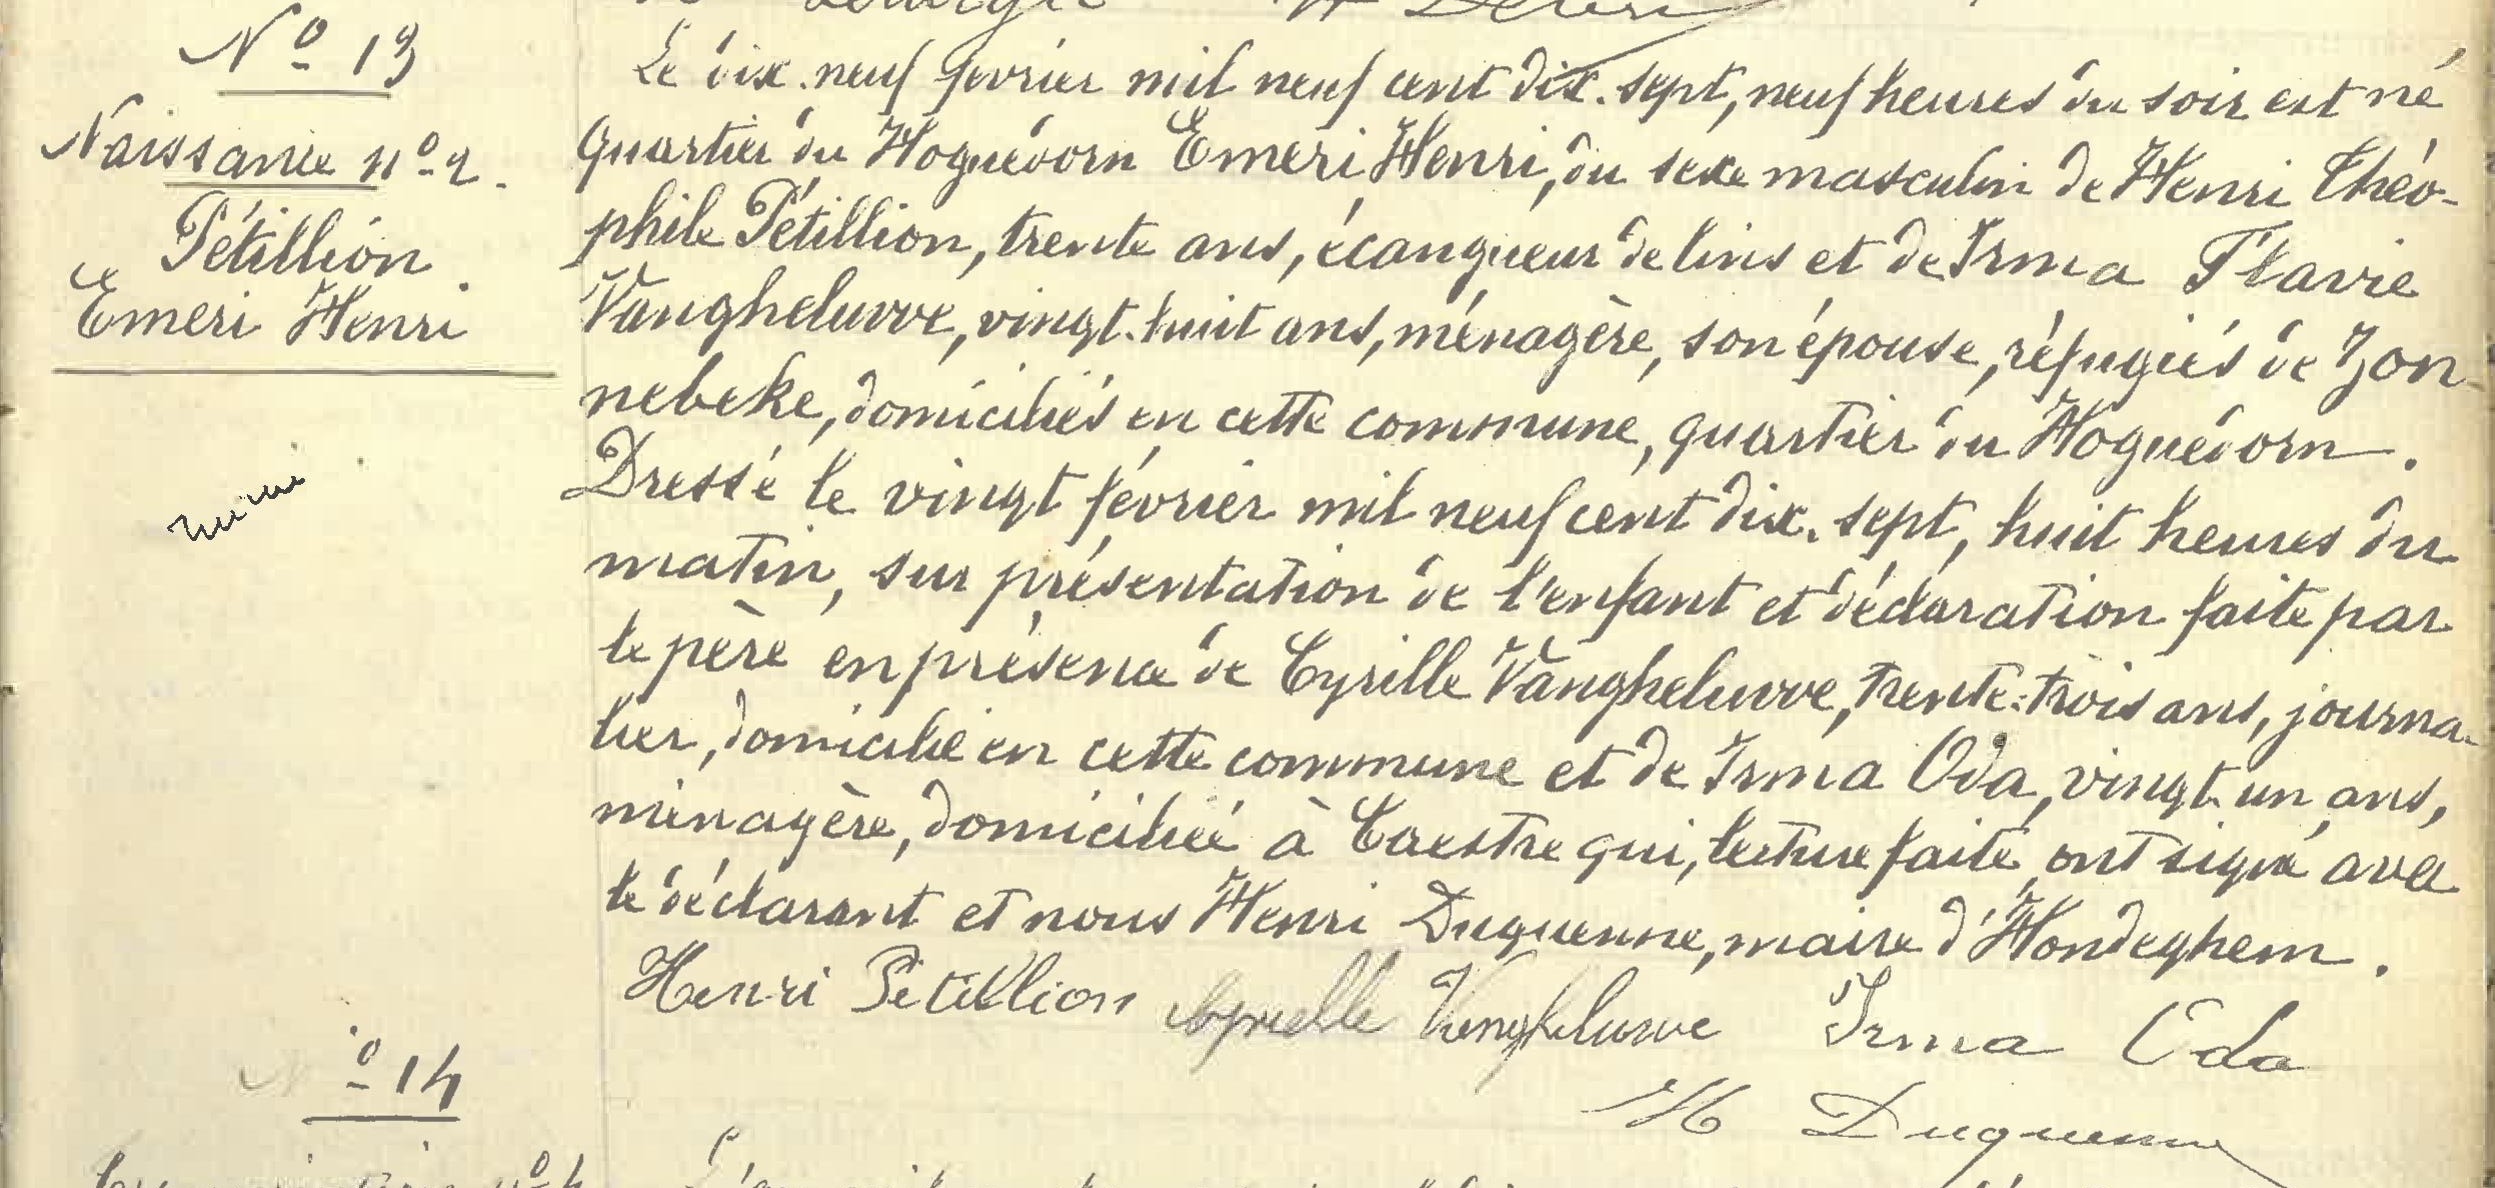 Nº 13
Naissance nº 2.
Pétillion
Emeri Henri
Le dix-neuf février mil neuf cent dix-sept, neuf heures du soir est né
quartier du Hoguedorn Emeri Henri, du sexe masculin de Henri Théo-
phile Pétillion, trente ans, écangueur de lins et de Irma Flavie
Vangheluwe, vingt-huit ans, ménagère, son épouse, réfugiés de Zon-
nebeke, domiciliés en cette commune, quartier du Hoguedorn.
Dressé le vingt février mil neuf cent dix-sept, huit heures du
matin, sur présentation de l'enfant et déclaration faite par
le père en présence de Cyrille Vangheluwe, trente-trois ans, journa-
lier, domicilié en cette commune et de Irma Oda, vingt-un ans,
ménagère, domiciliée à Caestre qui, lecture faite, ont signé avec
le déclarant et nous Henri Duquenne, maire d'Hondeghem.
Henri Pétillion Cyrielle Vangheluwe Irma Oda
H Duquenne
Nº 14